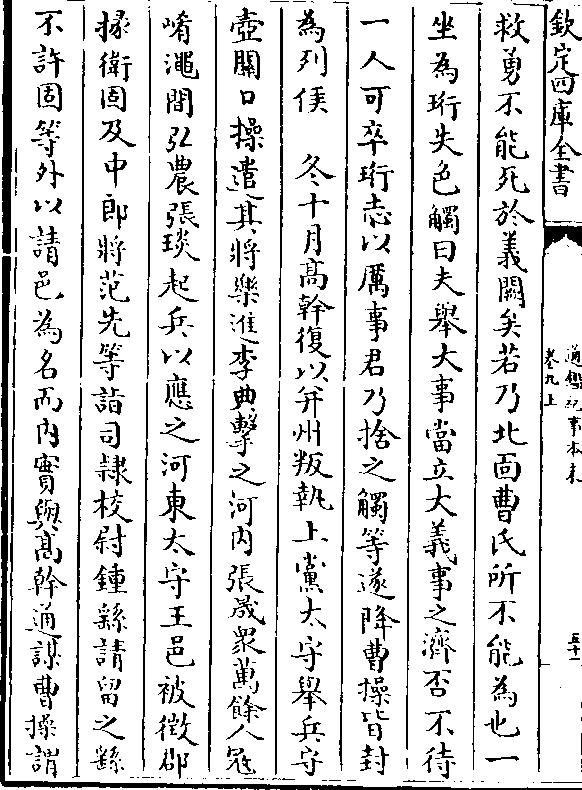 欽定四庫全書
通鑑紀事本末
卷九上
五十一
救勇不能死於義闕矣若乃北面曹氏所不能為也一
坐為珩失色觸曰夫舉大事當立大義事之濟否不待
一人可卒珩志以厲事君乃捨之觸等遂降曹操皆封
為列侯　冬十月髙幹復以并州叛執上黨太守舉兵守
壺關口操遣其將樂進李典擊之河内張晟衆萬餘人冦
崤澠間弘農張琰起兵以應之河東太守王邑被徴郡
掾衛固及中郎將范先等詣司隷校尉鍾繇請留之繇
不許固等外以請邑為名而内實與髙幹通謀曹操謂